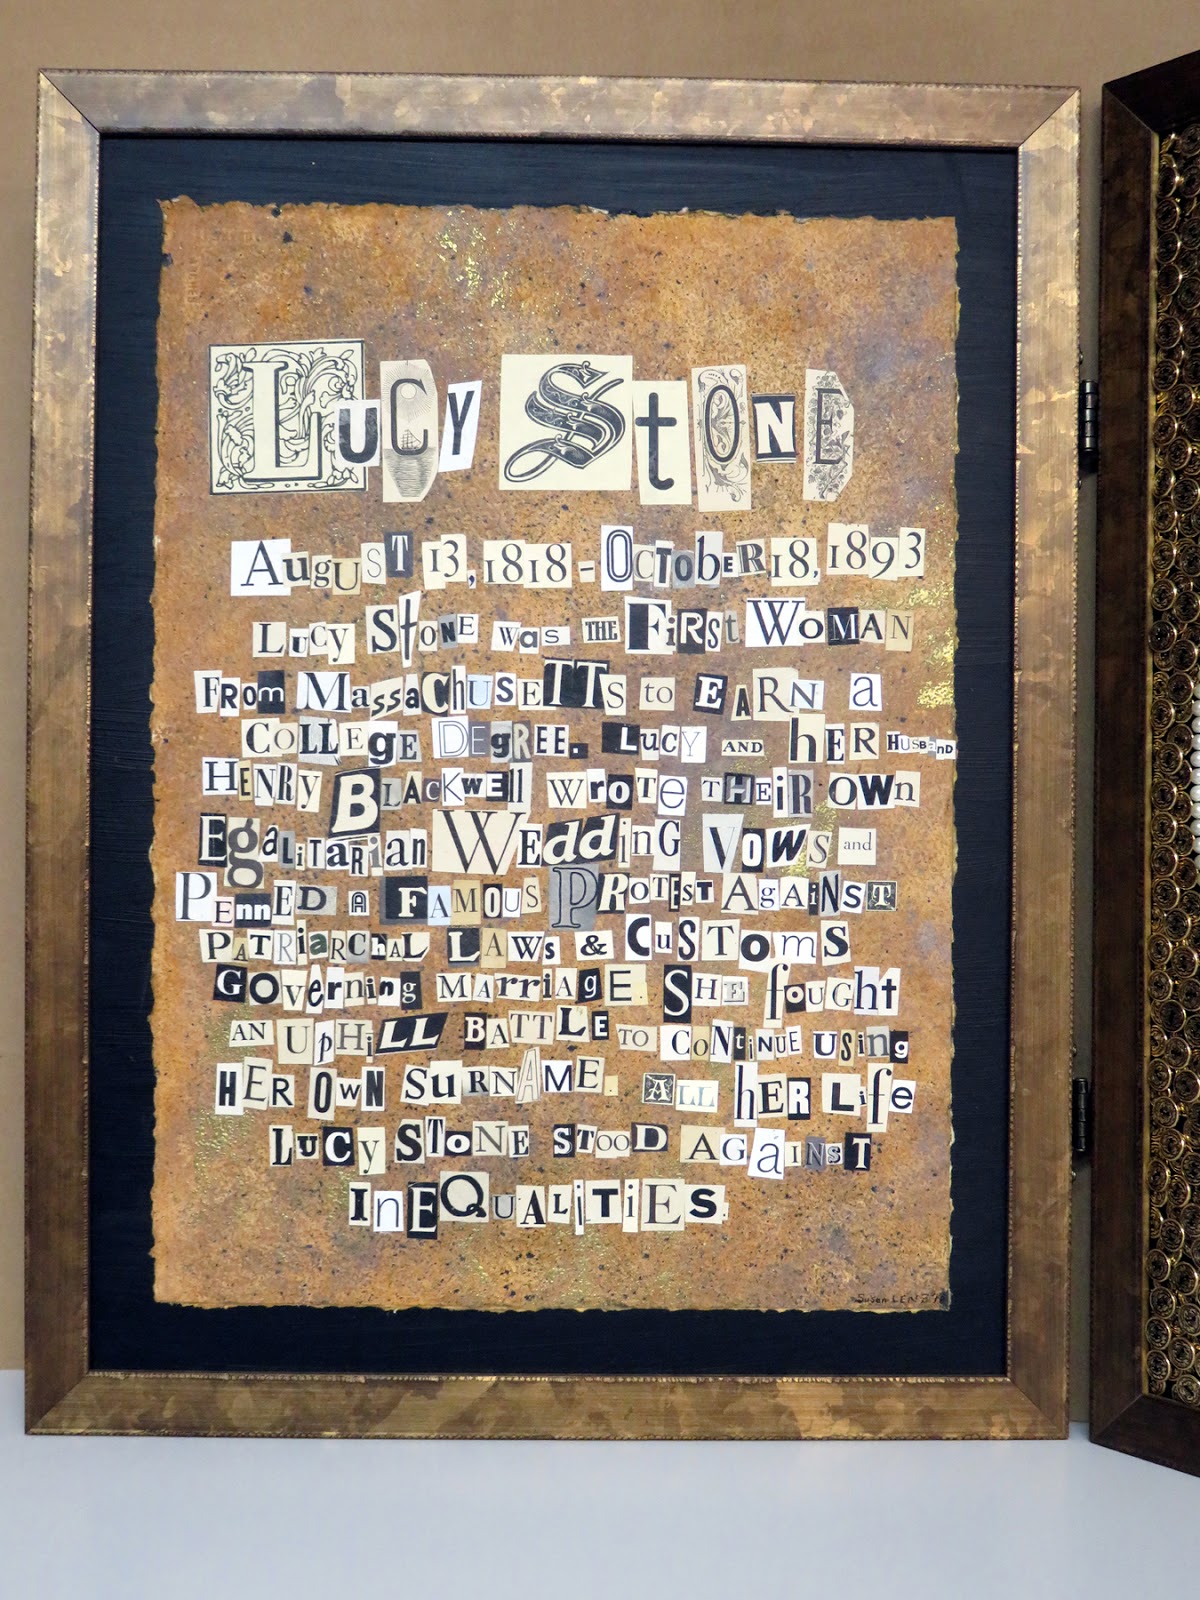 Lucy Stone
August 13, 1818 - October 18, 1893
Lucy Stone was the First Woman
From Massachusetts to Earn a
College Degree. Lucy and her Husband
Henry Blackwell wrote their own
Egalitarian Wedding Vows and
Penned a Famous Protest Against
Patriarchal Laws & Customs
Governing Marriage. She fought
an uphill battle to continue using
her own surname. All her life
Lucy Stone stood against
inequalities.
Susan LENZ